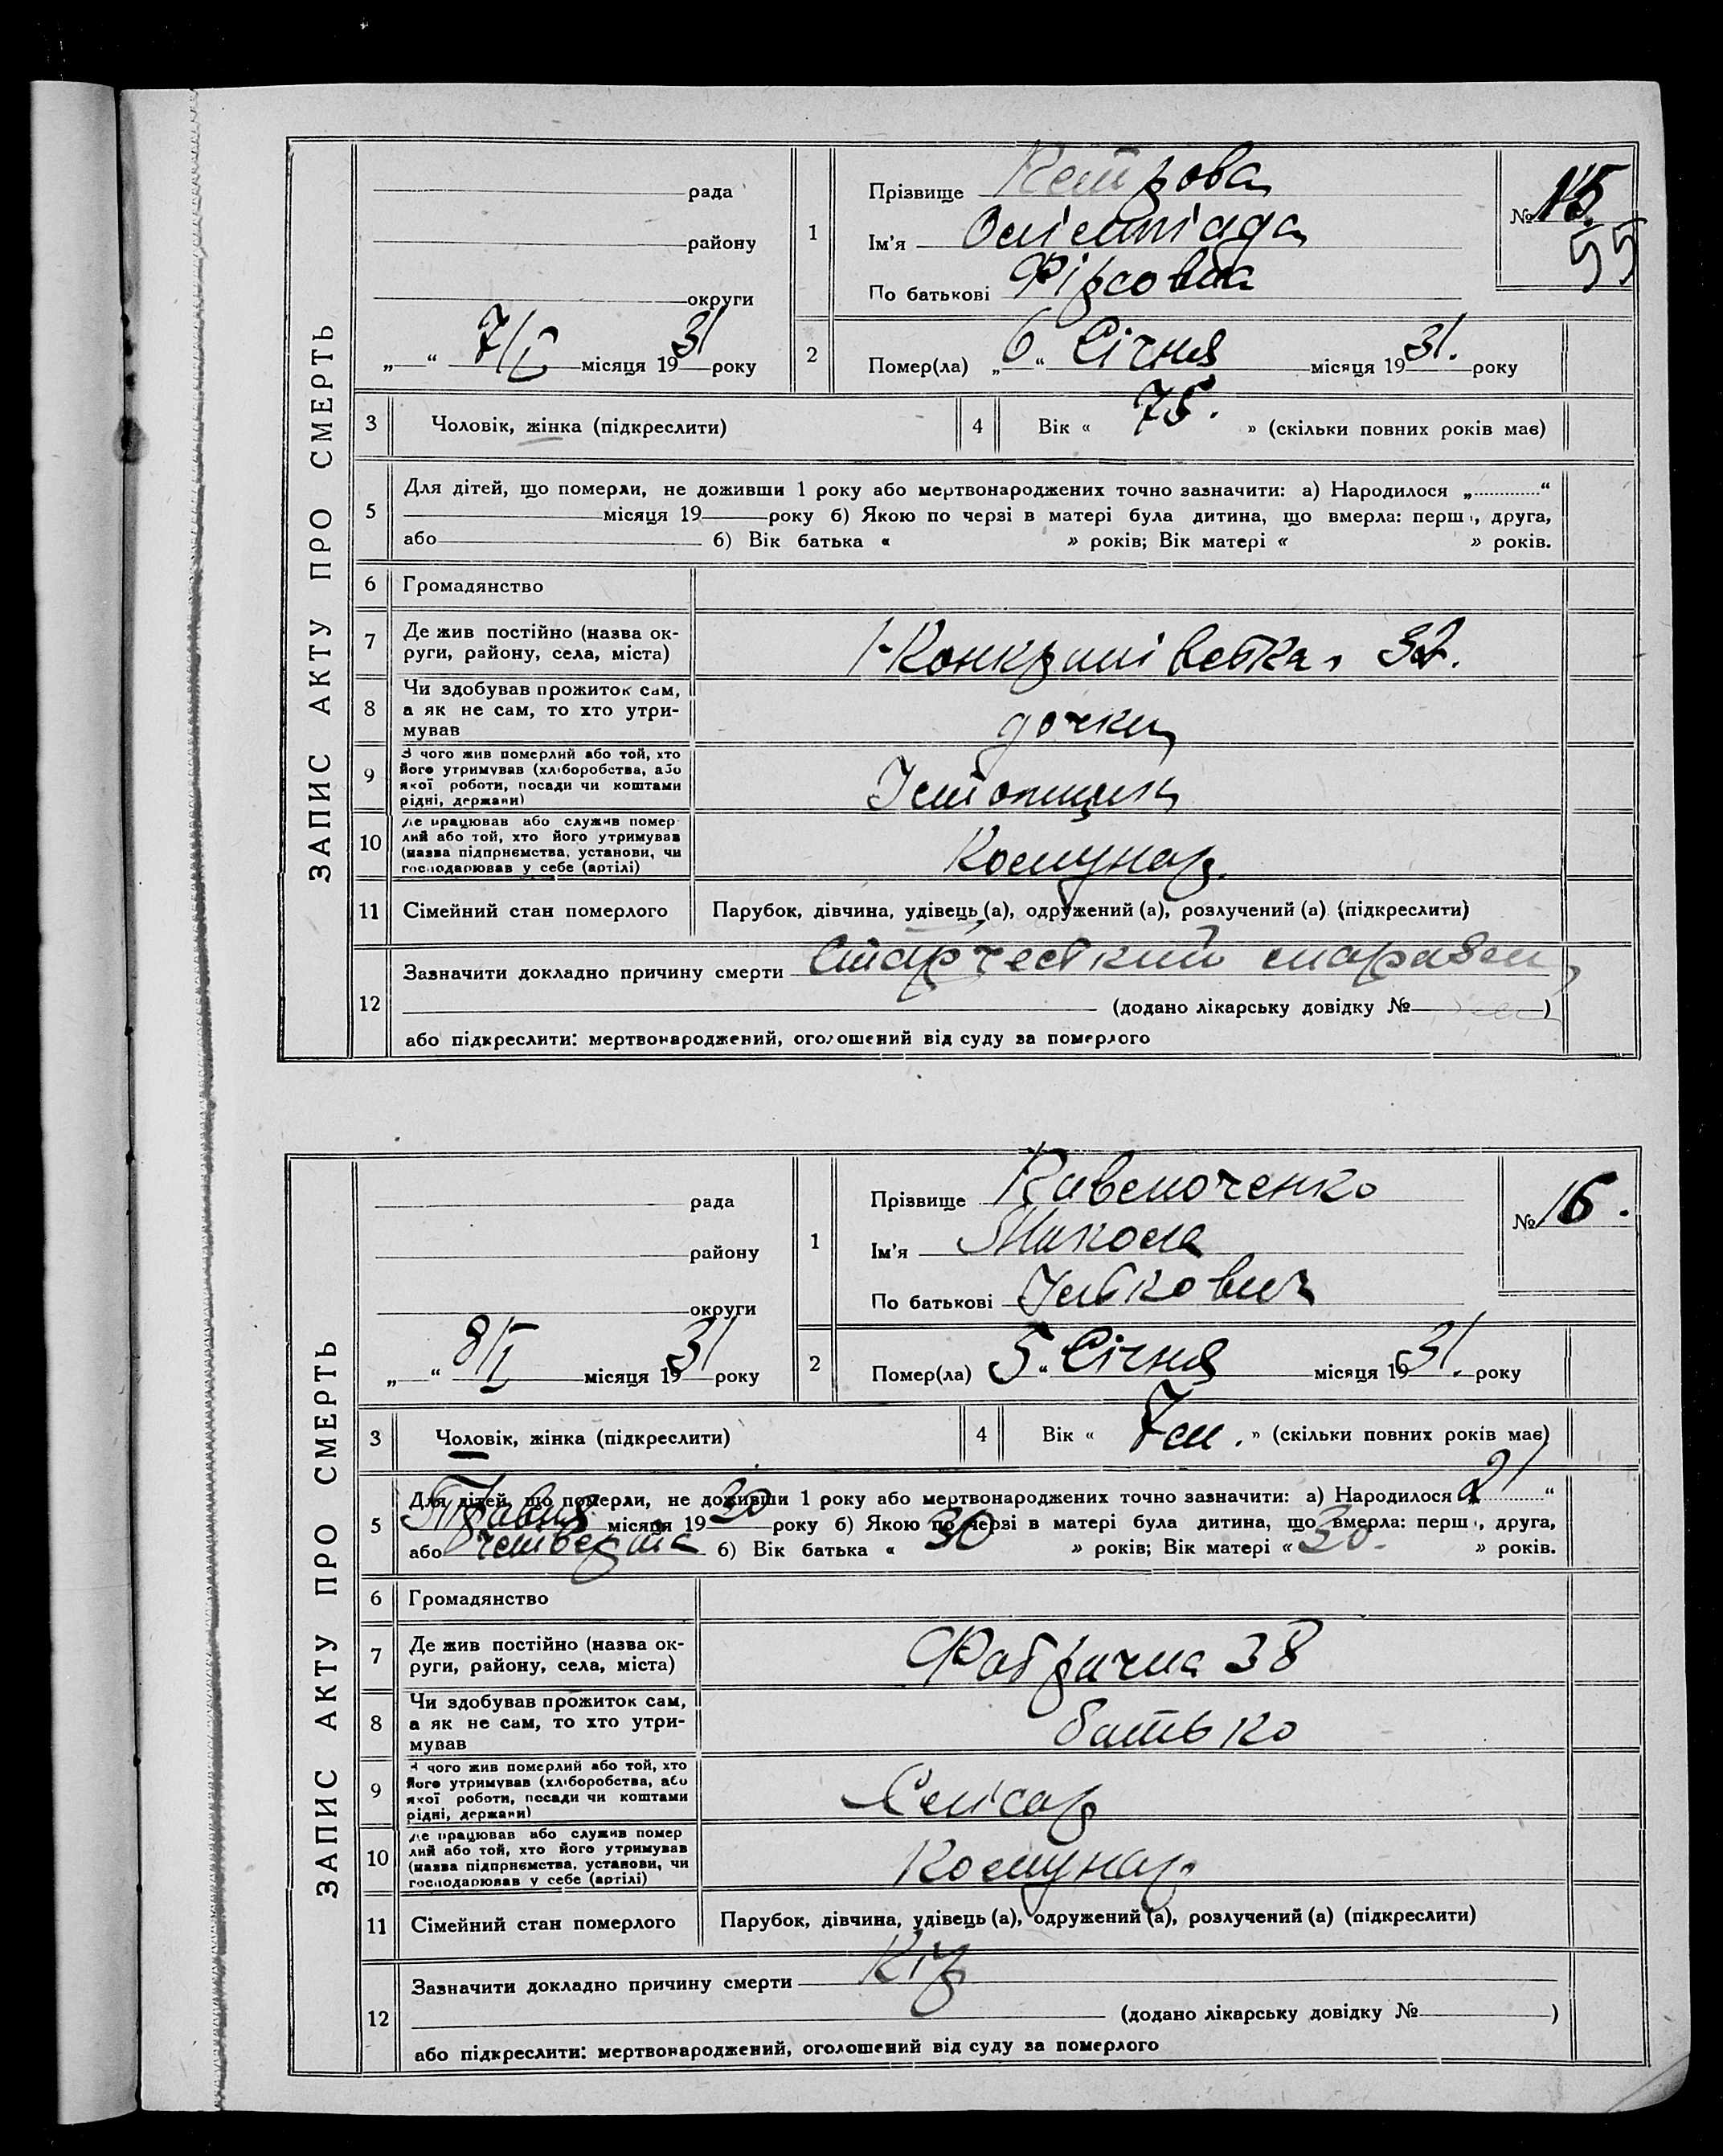 ЗАПИС АКТУ ПРО СМЕРТЬ
рада
району
округи
„ “ 7/I місяця 1931 року
1
Прізвище Петрова
Ім'я Олімпіада
По батькові Фірсовна
№ 15.
55
2
Помер(ла) „6“ Січня місяця 1931. року
3 Чоловік, жінка (підкреслити)
4 Вік « 75. » (скільки повних років має)
5 Для дітей, що померли, не доживши 1 року або мертвонароджених точно зазначити: а) Народилося „ “
місяця 19 року б) Якою по черзі в матері була дитина, що вмерла: перш , друга,
або б) Вік батька « » років; Вік матері « » років.
6 Громадянство
7 Де жив постійно (назва ок-
руги, району, села, міста)
32.
8 Чи здобував прожиток сам,
а як не сам, то хто утри-
мував
дочки
9 З чого жив померлий або той, хто
його утримував (хліборобства, або
якої роботи, посади чи коштами
рідні, держави)
10 Де працював або служив помер-
лий або той, хто його утримував
(назва підприємства, установи, чи
господарював у себе (артілі)
Комунар.
11 Сімейний стан померлого Парубок, дівчина, удівець (а), одружений (а), розлучений (а) (підкреслити)
12 Зазначити докладно причину смерти Старческий
(додано лікарську довідку № )
або підкреслити: мертвонароджений, оголошений від суду за померлого
ЗАПИС АКТУ ПРО СМЕРТЬ
рада
району
округи
„ “ 8/I місяця 1931 року
1
Прізвище
Ім'я Микола
По батькові
№ 16.
2
Помер(ла) 5 “ Січня місяця 1931. року
3 Чоловік, жінка (підкреслити)
4 Вік « 7 м. » (скільки повних років має)
5 Для дітей, що померли, не доживши 1 року або мертвонароджених точно зазначити: а) Народилося „ 21 “
Травня місяця 1930 року б) Якою по черзі в матері була дитина, що вмерла: перш , друга,
або четверта б) Вік батька « 30 » років; Вік матері « 30. » років.
6 Громадянство
7 Де жив постійно (назва ок-
руги, району, села, міста)
Фабрична 38
8 Чи здобував прожиток сам,
а як не сам, то хто утри-
мував
батько
9 З чого жив померлий або той, хто
його утримував (хліборобства, або
якої роботи, посади чи коштами
рідні, держави)
Слюсар
10 Де працював або служив помер
лий або той, хто його утримував
(назва підприємства, установи, чи
господарював у себе (артілі)
Комунар.
11 Сімейний стан померлого Парубок, дівчина, удівець (а), одружений (а), розлучений (а) (підкреслити)
12 Зазначити докладно причину смерти Кір
(додано лікарську довідку № )
або підкреслити: мертвонароджений, оголошений від суду за померлого